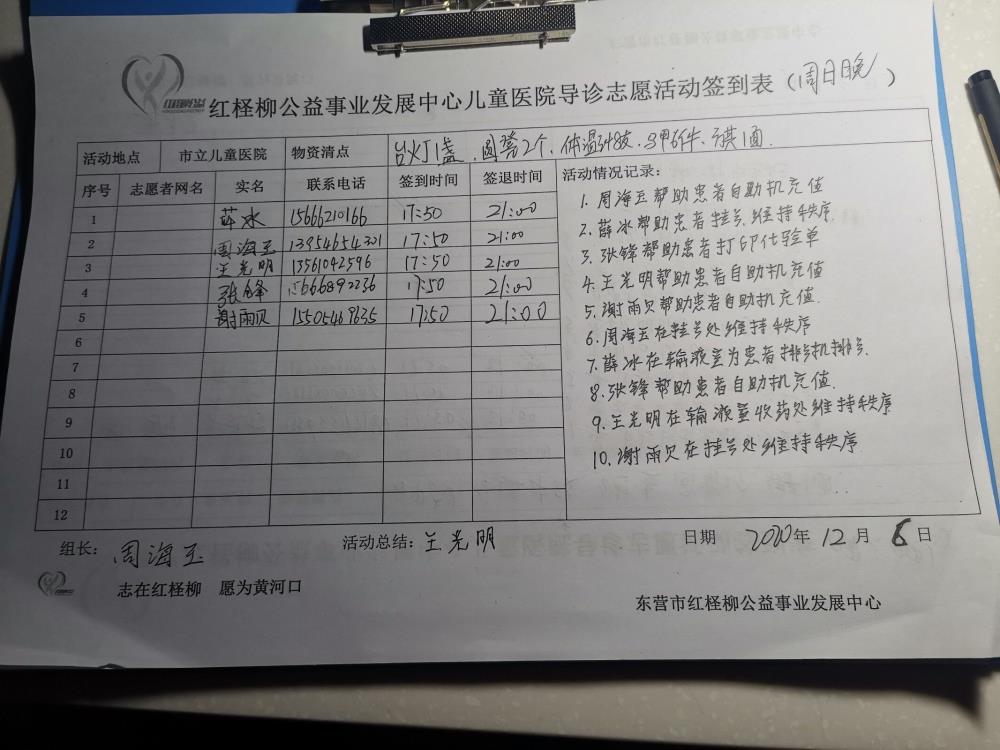 红柽柳公益事业发展中心儿童医院导诊志愿活动签到表（周日晚）
活动地点 市立儿童医院 物资清点 台灯1盏、圆凳2个、体温计8支、马甲6件、
序号 志愿者网名 实名 联系电话 签到时间 签退时间 活动情况记录：
1 薛冰 15666210166 17:50 21:00
2 周海玉 13954654301 17:50 21:00
3 王光明 13561042596 17:50 21:00
4 张锋 15666892236 17:50 21:00
5 谢雨贝 15505469635 17:50 21:00
6
7
8
9
10
11
12
1. 周海玉帮助患者自助机充值
2. 薛冰帮助患者挂号、维持秩序
3. 张锋帮助患者打印化验单
4. 王光明帮助患者自助机充值
5. 谢雨贝帮助患者自助机充值.
6. 周海玉在挂号处维持秩序
7. 薛冰在输液室为患者排号机排号.
8. 张锋帮助患者自助机充值.
9. 王光明在输液室收药处维持秩序
10. 谢雨贝在挂号处维持秩序
组长：周海玉 活动总结：王光明 日期 2020年12月6日
志在红柽柳 愿为黄河口
东营市红柽柳公益事业发展中心